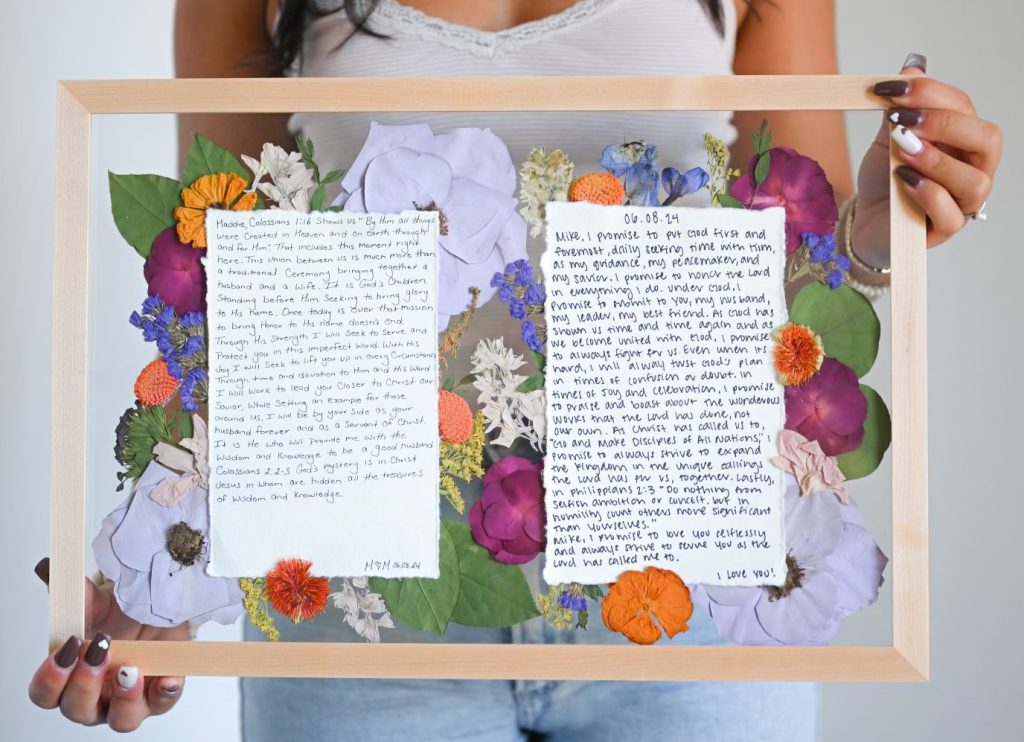 Maddie, Colossians 1:16 Shows us "By Him all things
were Created in Heaven and on earth through
and for Him." That includes this moment right
here. This Union between us is much more than
a traditional Ceremony bringing together a
husband and a wife. It is God's Children
Standing before Him Seeking to bring glory
to His Name. Once today is over that Mission
to bring Honor to His name doesn't end.
Through His Strength I will Seek to Serve and
Protect you in this imperfect World. With His
Joy I will Seek to lift you up in every Circumstance
Through time and devotion to Him and His Word
I will Work to lead you Closer to Christ our
Savior, While Setting an example for those
around us. I will be by your Side as your
husband forever and as a Servant of Christ.
It is He who Will Provide me With the
Wisdom and Knowledge to be a good husband
Colossians 2:2-3 God's mystery is in Christ
Jesus in Whom are hidden all the treasures
of Wisdom and Knowledge.
M♡M 06.08.24
06.08.24
Mike, I promise to put God first and
foremost, daily seeking time with Him,
as my guidance, my peacemaker, and
my Savior. I promise to honor the Lord
in everything I do. Under God, I
promise to submit to you, my husband,
my leader, my best friend. As God has
shown us time and time again and as
we become united with God, I promise
to always fight for us. Even when its
hard, I will alway trust God's plan
in times of confusion or doubt. In
times of joy and celebration, I promise
to praise and boast about the wonderous
works that the Lord has done, not
our own. As Christ has called us to,
"Go and Make Disciples of All Nations," I
promise to always strive to expand
the Kingdom in the unique callings
the Lord has for us, together. Lastly,
in Philippians 2:3 "Do nothing from
selfish ambition or conceit, but in
humility count others more significant
than yourselves."
Mike, I promise to love you selflessly
and always strive to serve you as the
Lord has called me to.
I love you!